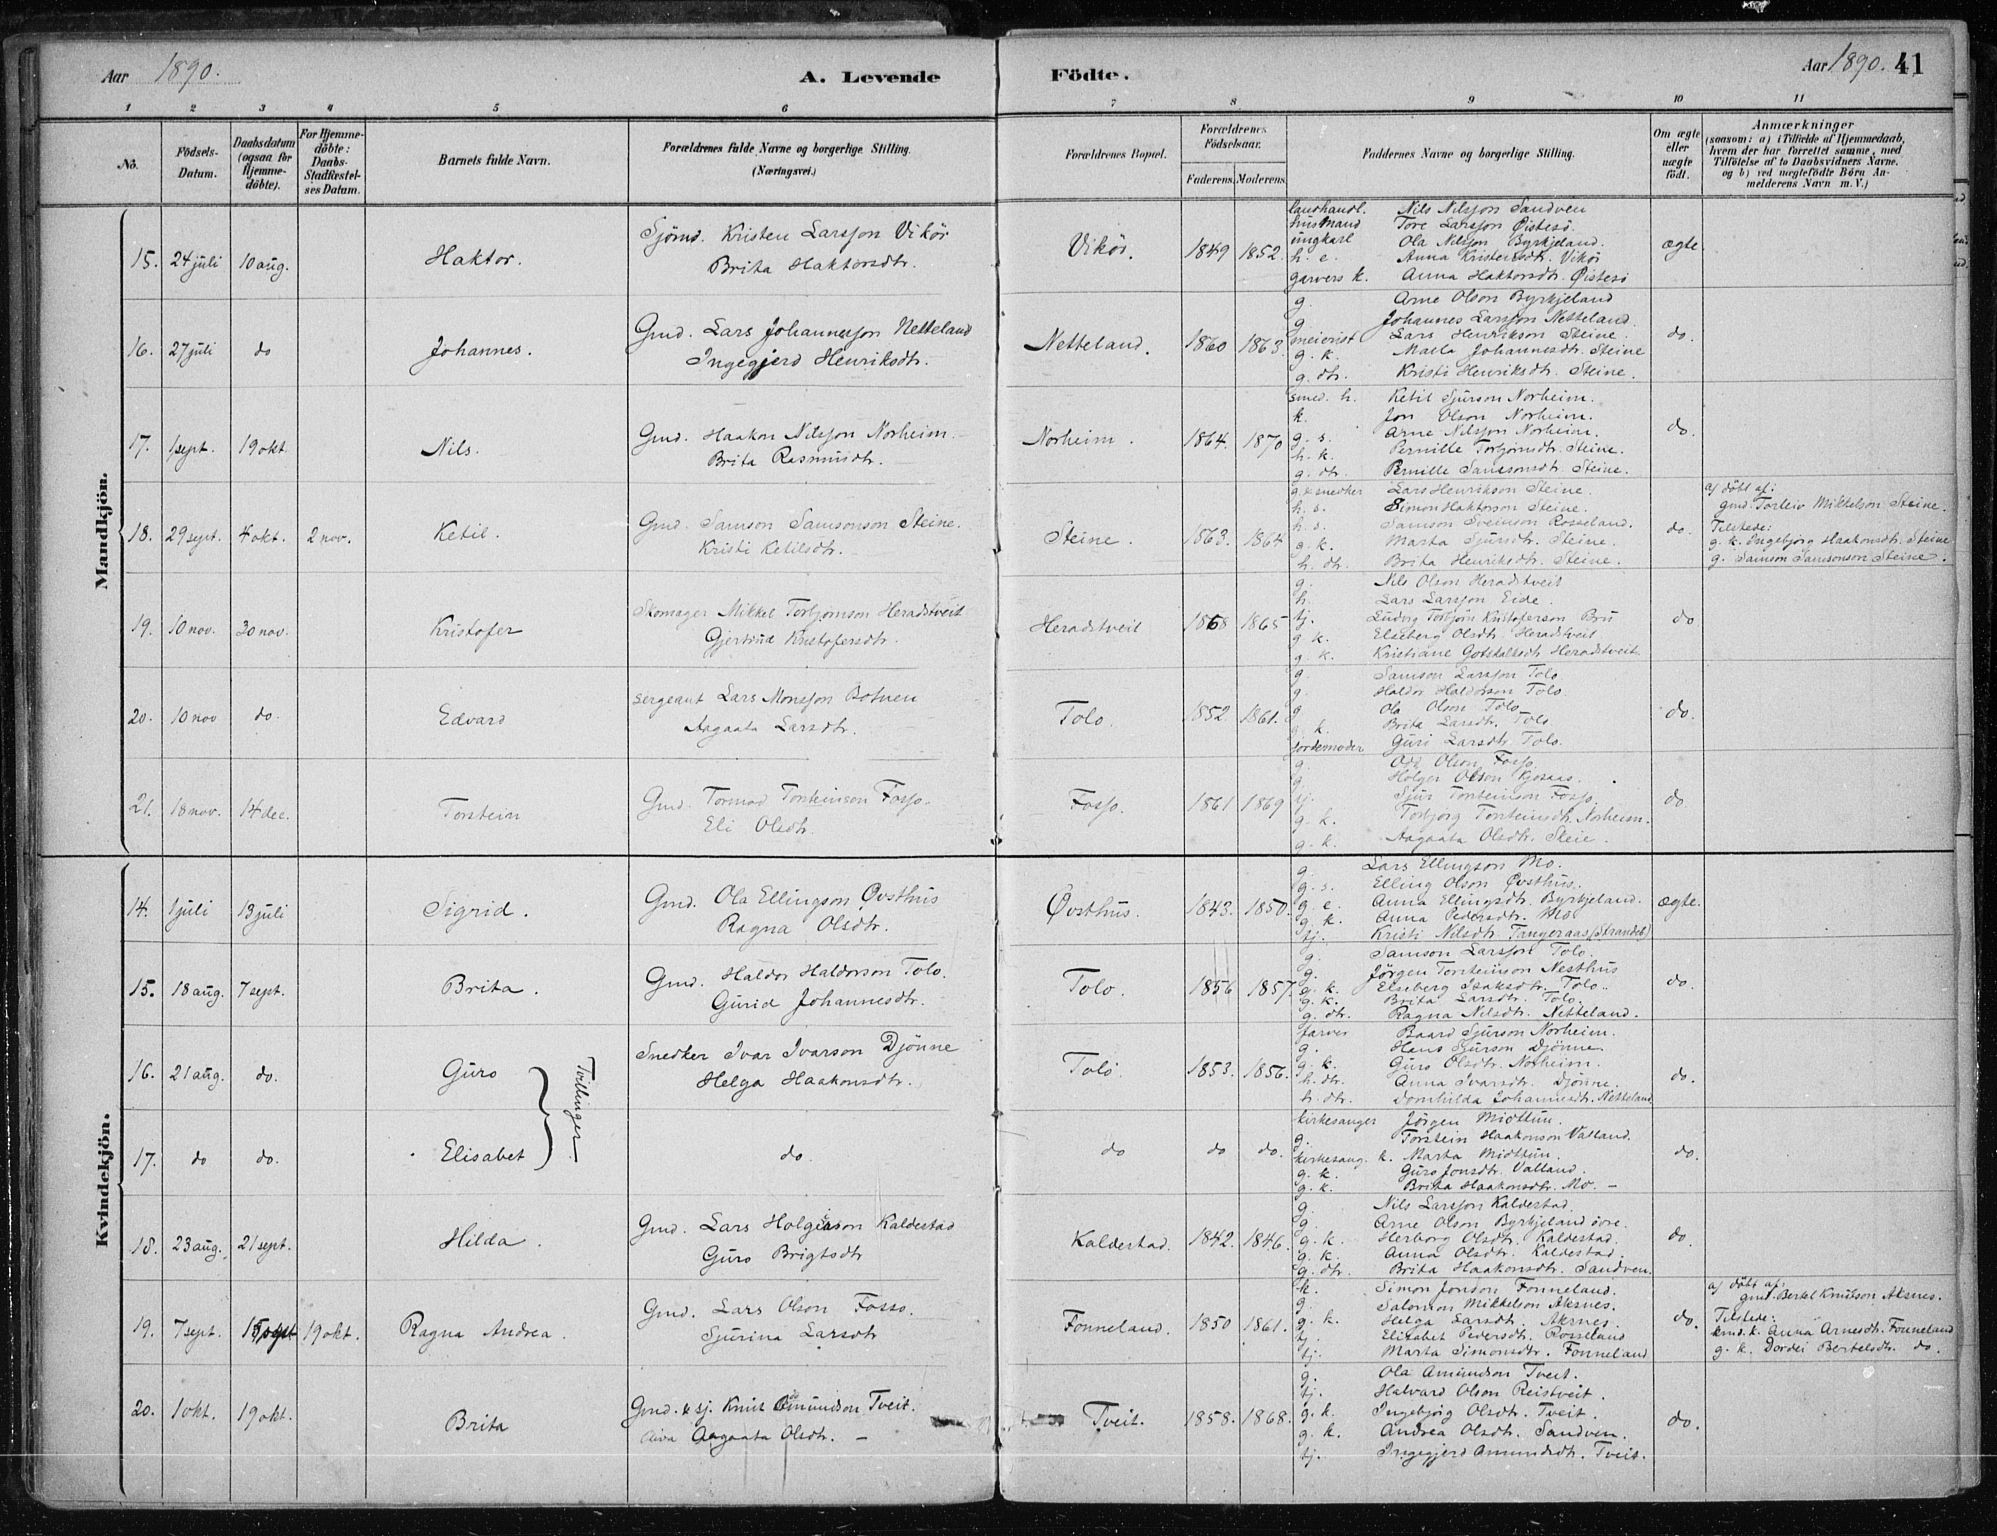 Aar 1890.
A. Levende Födte.
Aar 1890. 41
1 2 3 4 5 6 7 8 9 10 11
No.
Födsels-Datum.
Daabsdatum (ogsaa for Hjemme-döbte).
For Hjemme-döbte: Daabs-Stadfæstel-ses Datum.
Barnets fulde Navn.
Forældrenes fulde Navne og borgerlige Stilling.
(Næringsvei.)
Forældrenes Bopæl.
Forældrenes Födselsaar.
Faderens. Moderens.
Faddernes Navne og borgerlige Stilling.
Om ægte eller uægte födt.
Anmærkninger
(saasom: a) i Tilfælde af Hjemmedaab,
hvem der har forrettet samme, med
Tilföielse af to Daabsvidners Navne.
og b) ved uægtefödte Börn An-
melderens Navn m. V.)
Mandkjön.
15. 24 juli 10 aug. Haktor. Sjömd. Kristen Larsson Vikör
Brita Haktorsdtr. Vikör. 1849 1852. ægte
landhandl. Nils Nilsson Sandven
husmand Tore Larsson Østesö
ungkarl Ola Nilsson Byrkjeland.
h. e. Anna Kristensdtr. Vikör
garvers k. Anna Haktorsdtr. Østesö
16. 27 juli do Johannes. Gmd. Lars Johannesson Netteland
Ingegjerd Henriksdtr. Netteland. 1860 1863. do.
g. Arne Olson Byrkjeland
g Johannes Larsson Netteland.
meierist Lars Henrikson Steine.
g. k. Maela Johannesdtr. Steine
g. dtr. Kristi Henriksdtr. Steine.
17. 1 sept. 19 okt Nils. Gmd. Haakon Nilsson Norheim.
Brita Rasmusdtr. Norheim. 1864. 1870 do.
smed. h. Ketil Sjurson Norheim.
k. Jon Olson Norheim.
g. s. Arne Nilsson Norheim.
h. k. Pernille Torbjornsdtr. Steine.
g. dtr. Pernille Samsonsdtr. Steine.
18. 29 sept. 4 okt. 2 nov. Ketil. Gmd. Samson Samsonson Steine.
Kristi Ketilsdtr. Steine. 1863. 1864 do.
g. & snedker Lars Henrikson Steine.
h. s. Simon Haktorson Steine.
h. s. Samson Sveinson Rosseland.
g. k. Marta Sjursdtr. Steine.
h. dtr. Brita Henriksdtr. Steine.
a) döbt af:
gmd. Torleiv Mikkelson Steine.
Tilstede:
g. k. Ingebjörg Haakonsdtr. Steine
g. Samson Samsonson Steine.
19. 10 nov. 30 nov. Kristofer Skomager Mikkel Torbjornson Heradstveit
Gjertrud Kristofersdtr. Heradstveit 1868 1865 do
g. Nils Olson Heradstveit
h. Lars Larsson Eide.
tj. Ludvig Torbjörn Kristoferson Bru
g. k. Elseberg Olsdtr. Heradstveit
g. k. Kristiane Gotskalksdtr Heradstveit
20. 10 nov do. Edvard Sergeant Lars Monsson Botnen
Aagaata Larsdtr. Tolo. 1852 1861. do.
g. Samson Larsson Tolo
g. Haldor Haldorson Tolo
g Ola Olson Tolo
g. k. Brita Larsdtr. Tolo.
Jordemoder Guri Larsdtr. Tolo.
21. 18 nov. 14 dec. Torstein Gmd. Tormod Torsteinson Fosso.
Eli Olsdtr. Fosso. 1861 1869 do
g. Odd Olson Fosso.
g Holger Olson Kjosaas.
tj. Sjur Torsteinson Fosso
g. k. Torbjorg Torsteinsdtr. Norheim.
g. k. Aagaata Olsdtr. Steie.
Kvindekjön.
14. 1 juli 13 juli Sigrid. Gmd. Ola Ellingson Øvsthus
Ragna Olsdtr. Øvsthus. 1843. 1850. ægte.
g. Lars Ellingson Mo.
g. s. Elling Olson Øvsthus.
g. e. Anna Ellingsdtr. Byrkjeland.
g. k. Anna Pedersdtr. Mo
tj. Kristi Nilsdtr. Tangeraas (Strandeb)
15. 18 aug. 7 sept. Brita. Gmd. Haldor Haldorson Tolo.
Gurid Johannesdtr. Tolo. 1856 1857. do.
g. Samson Larsson Tolo.
g. Jörgen Torsteinson Nesthus
g. k. Elseberg Isaksdtr. Tolo.
g. k. Brita Larsdtr. Tolo.
g. dtr. Ragna Nilsdtr. Netteland.
16. 21 aug. do. Guro Snedker Ivar Ivarson Djönne
Helga Haakonsdtr. Tolo. 1853. 1856. do.
Tvillinger
farver Baard Sjurson Norheim.
g. Hans Sjurson Djönne
g. k. Guro Olsdtr. Norheim.
h. dtr. Anna Ivarsdtr. Djönne.
h. dtr. Domhilda Johannesdtr. Netteland
17. do do. Elisabet do do do do. do.
kirkesanger Jörgen Midttun.
g. Torstein Haakonson Valland.
kirkesang. k. Marta Midttun.
g. k. Guro Jonsdtr. Valland.
g. k. Brita Haakonsdtr. Mo. –
18. 23 aug. 21 sept. Hilda. Gmd. Lars Holgerson Kaldestad
Guro Brigtsdtr Kaldestad. 1842. 1846. do.
g. Nils Larsson Kaldestad.
g. Arne Olson Byrkjeland övre.
g. k. Herborg Olsdtr. Kaldestad.
g. k. Anna Olsdtr. Kaldestad.
g. dtr. Brita Haakonsdtr. Sandven.
19. 7 sept. 15 sept 19 okt. Ragna Andrea. Gmd. Lars Olson Fosso.
Sjurina Larsdtr Fonneland. 1850 1861. do.
k. Simon Jonson Fonneland.
g. Salomon Mikkelson Aksnes.
g. k. Helga Larsdtr. Aksnes.
tj. Elisabet Pedersdtr. Rosseland
tj. Marta Simonsdtr. Fonneland
a) döbt af:
gmd. Bertel Knutson Aksnes.
Tilstede:
kmd. k. Anna Arnesdtr. Fonneland
g. k. Dordei Bertelsdtr. do.
20. 1 okt. 19 okt. Brita Gmd. & sj. Knut Amundson Tveit.
Aagaata Olsdtr. – Tveit. 1858. 1868. do.
g. Ola Amundson Tveit.
tj. Halvard Olson Reistveit.
g. k. Ingebjörg Olsdtr. Tveit.
g. k. Andrea Olsdtr. Sandven.
tj. Ingegjerd Amundsdtr. Tveit.